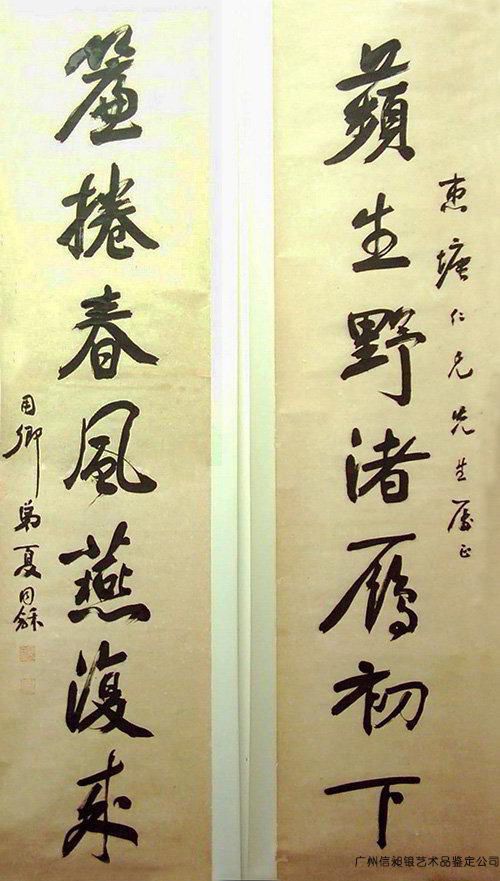 惠塘仁兄先生屬正
蘋生野渚鴈初下
簾捲春風燕復來
用卿弟夏同龢
广州信昶银艺术品鉴定公司